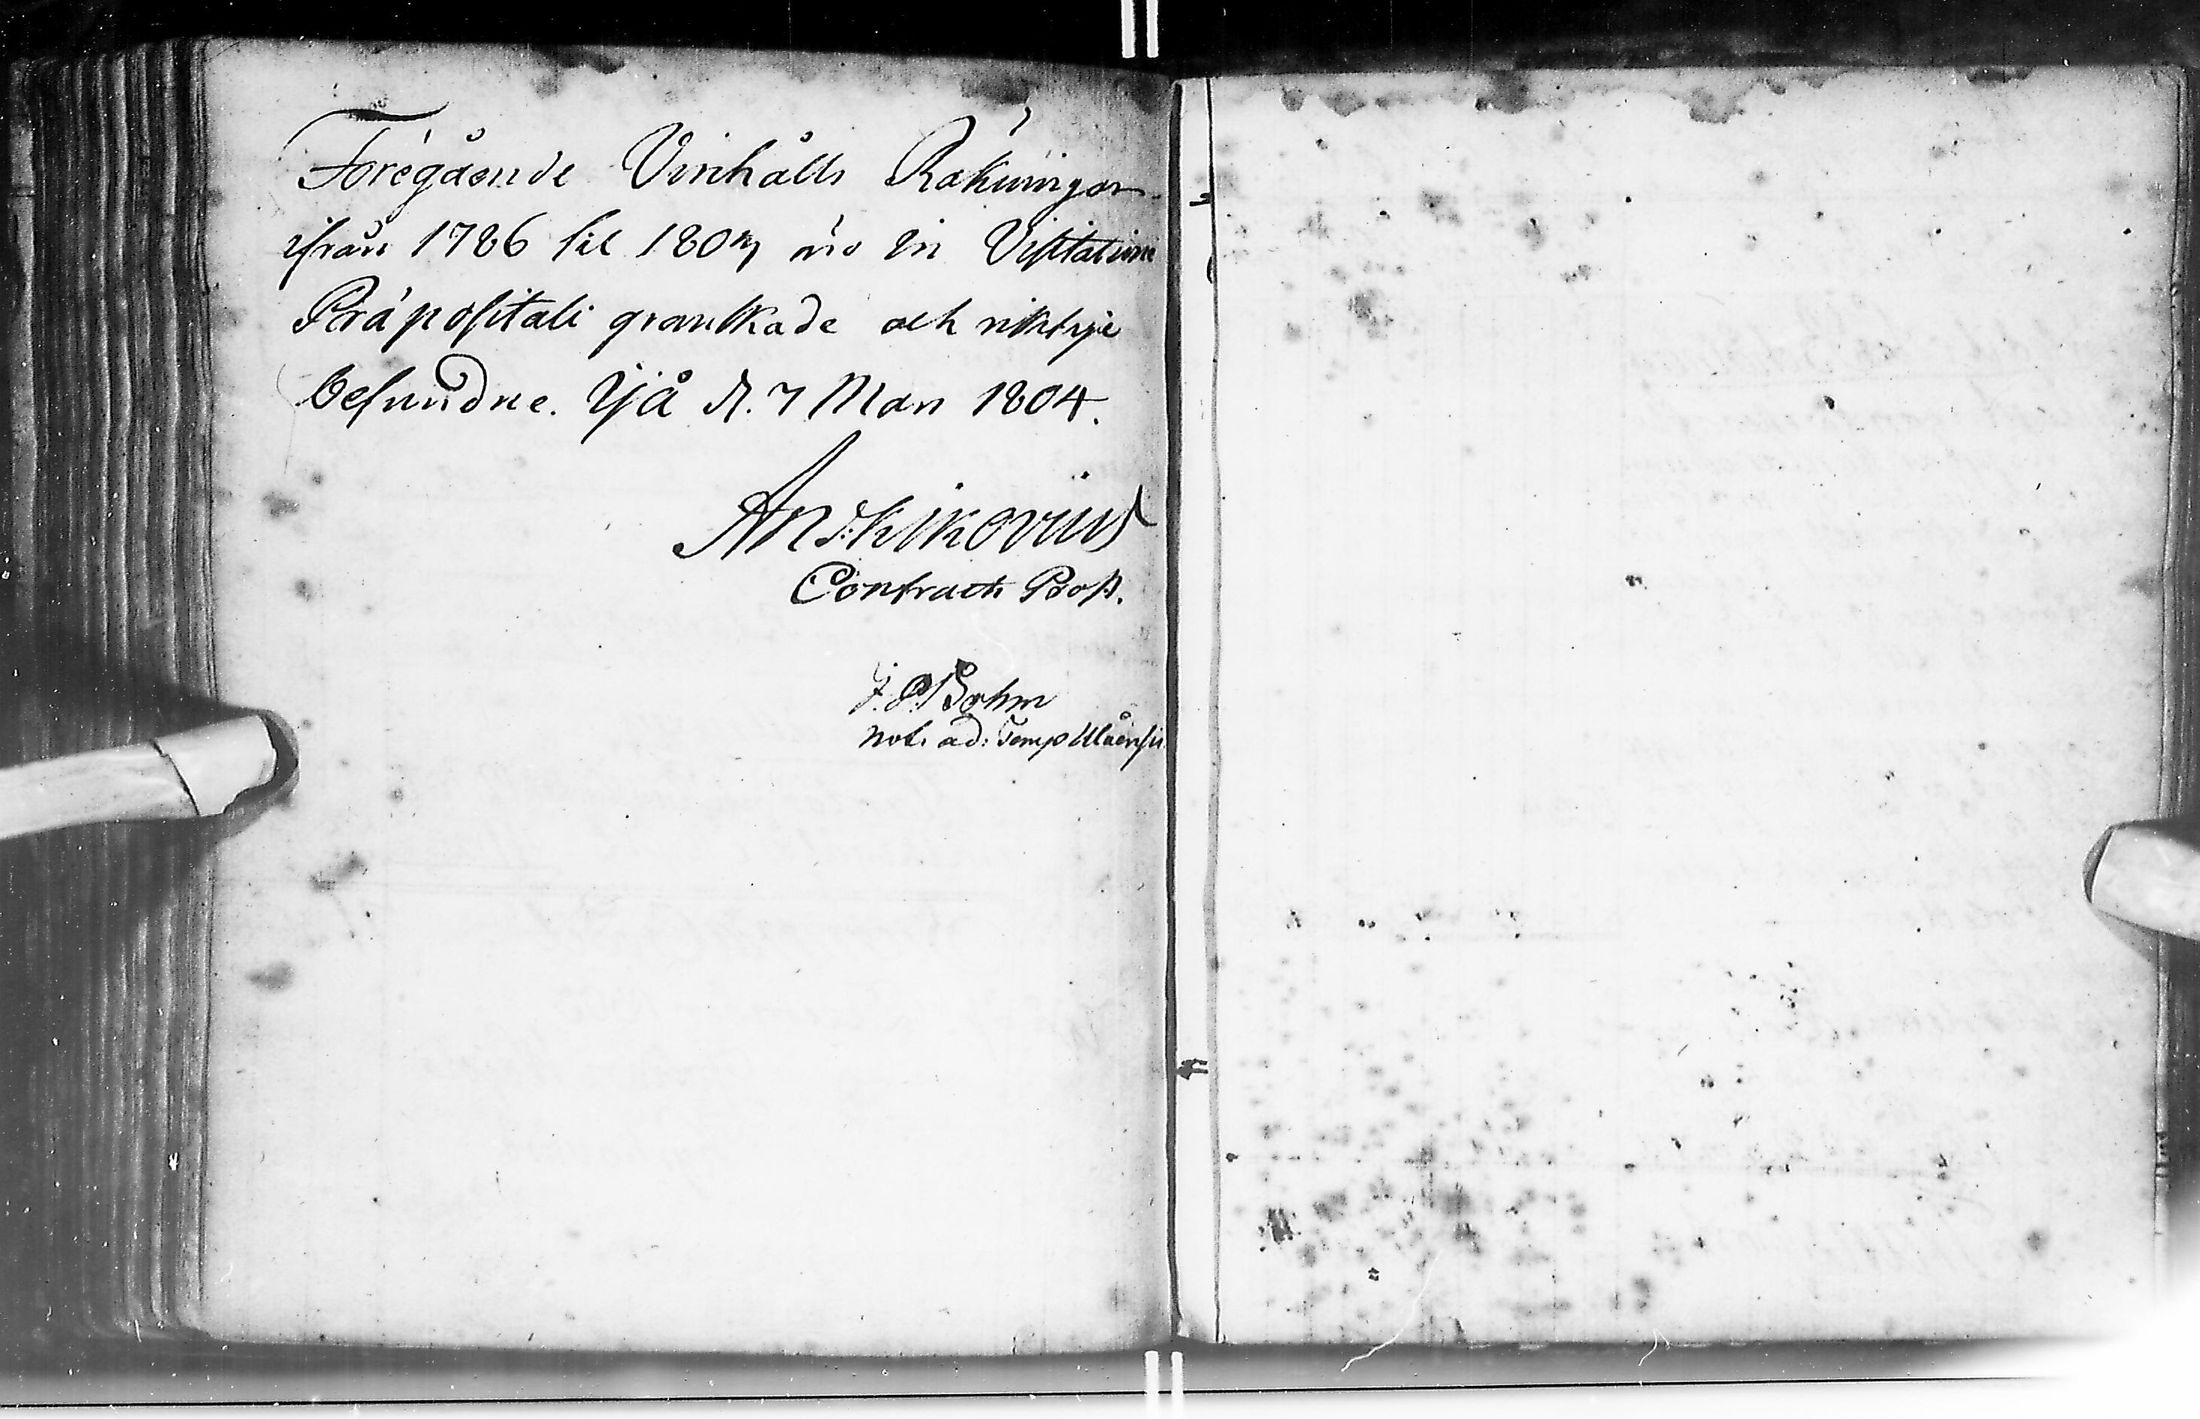 Föregående Vinhålls Räkningar
ifrån 1786 til 1803 äro in Visitatione
Præpositali granskade och riktige
befundne. Ijå d. 7 Mars 1804.
Contracts Prost.
J. P. Bohm
Not. ad: Temp Uloensis